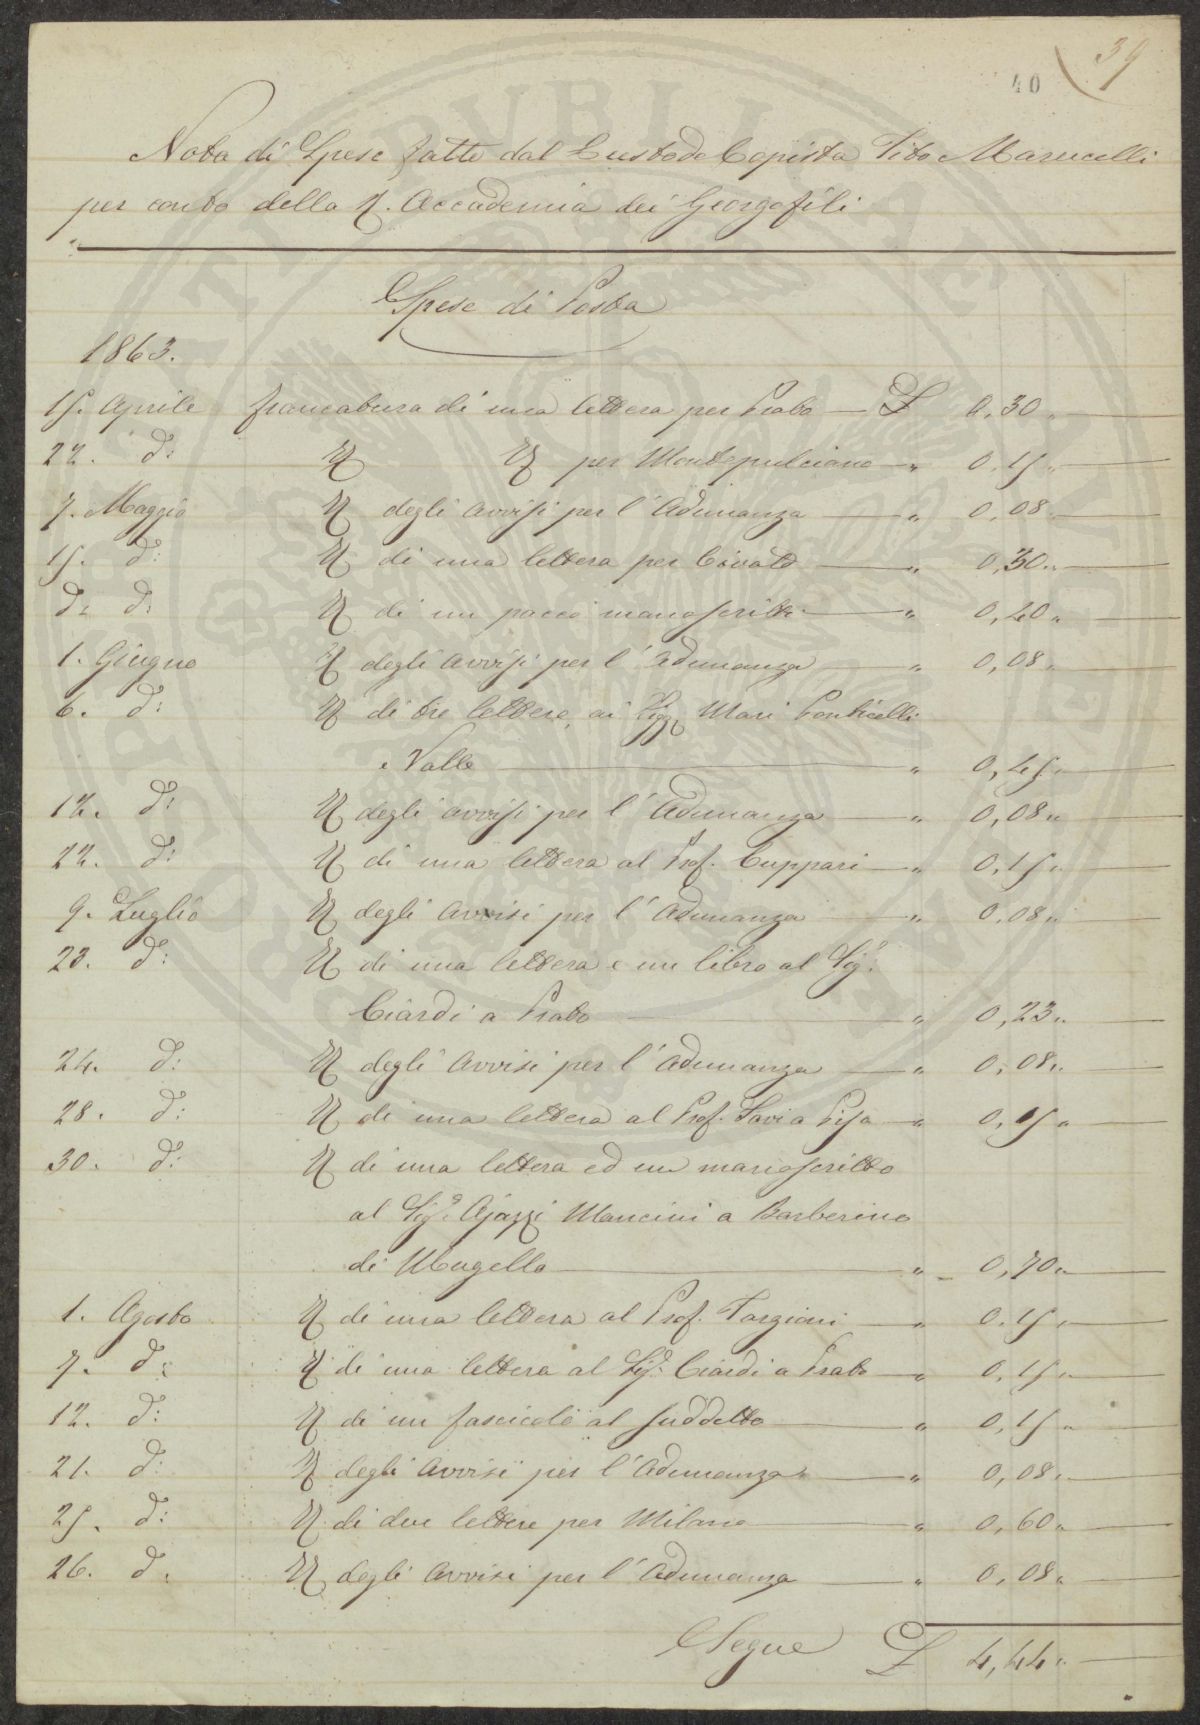 39
40
Nota di Spese fatte dal Custode Copista Tito Marucelli
per conto della R. Accademia dei Georgofili
Spese di Posta
1863.
15. Aprile francatura di una lettera per Prato — £ 0,30 „
22. d: „ „ per Montepulciano „ 0,15 „
7. Maggio „ degli avvisi per l'Adunanza „ 0,08 „
15. d: „ di una lettera per „ 0,30 „
d: d: „ di un pacco manoscritti „ 0,40 „
1. Giugno „ degli avvisi per l'adunanza „ 0,08 „
6. d: „ di tre lettere, ai Sigg. Mari Ponticelli
e Valle „ 0,45 „
12. d: „ degli avvisi per l'Adunanza „ 0,08 „
22. d: „ di una lettera al Prof. Cuppari „ 0,15 „
9. Luglio „ degli avvisi per l'Adunanza „ 0,08 „
23. d: „ di una lettera e un libro al Sig.r
Ciardi a Prato „ 0,23 „
24. d: „ degli avvisi per l'adunanza „ 0,08 „
28. d: „ di una lettera al Prof. Savi a Pisa „ 0,15 „
30. d: „ di una lettera ed un manoscritto
al Sig.r Ajazzi Mancini a Barberino
di Mugello „ 0,70 „
1. Agosto „ di una lettera al Prof. Targioni „ 0,15 „
7. d: „ di una lettera al Sig.r Ciardi a Prato „ 0,15 „
12. d: „ di un fascicolo al suddetto „ 0,15 „
21. d: „ degli avvisi per l'adunanza „ 0,08 „
25. d: „ di due lettere per Milano „ 0,60 „
26. d: „ degli avvisi per l'Adunanza „ 0,08 „
Segue £ 4,44 „